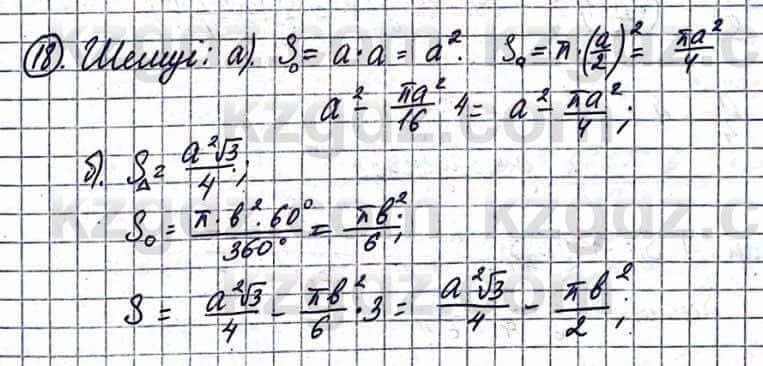 18). Шешуі: а). S□ = a·a = a². S₀ = π·(a/2)² = πa²/4
a² - πa²/16 · 4 = a² - πa²/4;
б). S△ = a²√3/4;
S₀ = π·в²·60°/360° = πв²/6;
S = a²√3/4 - πв²/6 · 3 = a²√3/4 - πв²/2;
kzgdz.com